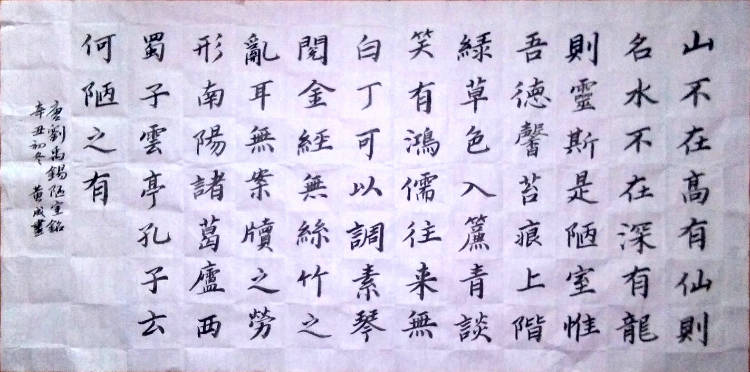 山不在高有仙則
名水不在深有龍
則靈斯是陋室惟
吾德馨苔痕上階
緑草色入簾青談
笑有鴻儒往来無
白丁可以調素琴
閱金經無絲竹之
亂耳無案牘之勞
形南陽諸葛廬西
蜀子雲亭孔子云
何陋之有
唐劉禹錫陋室銘
辛丑初冬 黃成書